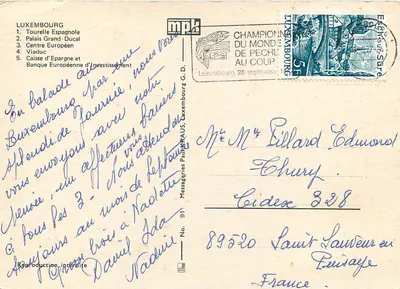 LUXEMBOURG
1. Tourelle Espagnole
2. Palais Grand-Ducal
3. Centre Européen
4. Viaduc
5. Caisse d'Epargne et
Banque Européenne d'Investissement
mpk
CHAMPIONN
DU MOND
DE PECHE
AU COUP
Luxembourg, 25 septembre
LUXEMBOURG
5F
En balade au
Luxembourg par une
splendide journée, nous
vous envoyons avec notre
pensée, un affectueux baisers
à tous les 3. Nous attendons
toujours au mois de Septembre
Gros bisis à Nadette
Daniel Ida
Nadine
No. 91
Messageries Paul KRAUS, Luxembourg G. D.
Reproduction interdite
Mr Me Pillard Edmond
Thury
Cidex 328
89520 Saint Sauveur en
Puisaye
France.